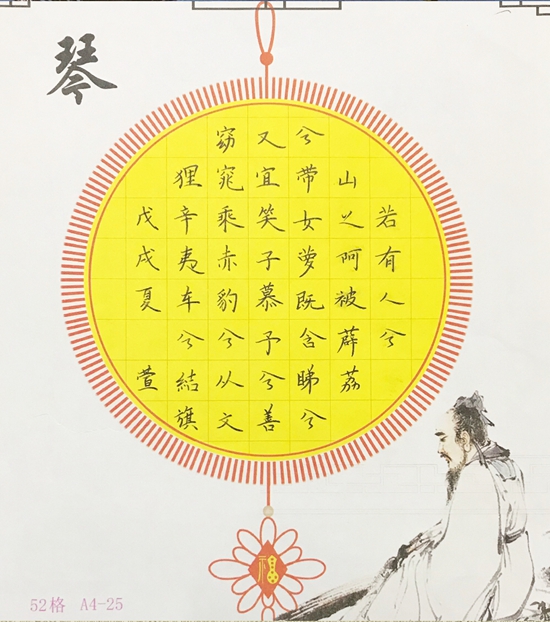 琴
若有人兮
山之阿被薜荔
兮带女萝既含睇兮
又宜笑子慕予兮善
窈窕乘赤豹兮从文
狸辛夷车兮結旗
戊戌夏 萱
福
52格 A4-25